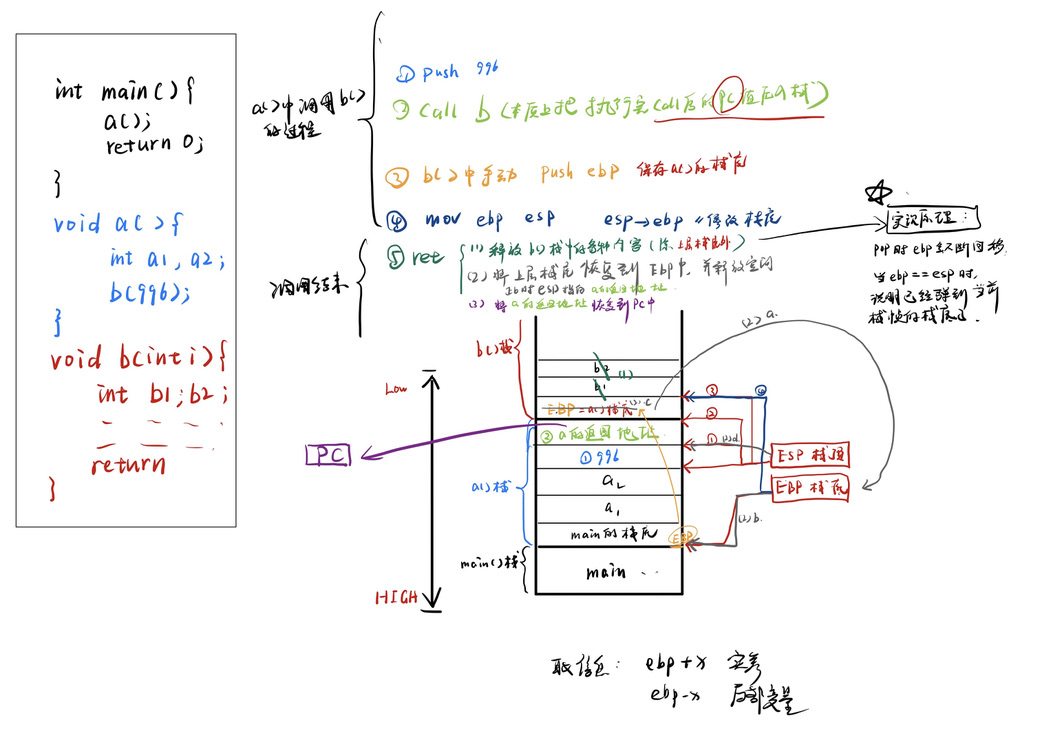 int main() {
a();
return 0;
}
void a() {
int a1, a2;
b(996);
}
void b(int i) {
int b1; b2;
return
}
a()中调用b()
的过程
① push 996
② call b (本质上把执行完call后的PC值压入栈)
③ b()中手动 push ebp 保存a()的栈底
④ mov ebp esp esp→ebp 修改栈底
调用结束
⑤ ret
(1) 释放b()栈帧的各种内容(除上层栈底外)
(2) 将上层栈底恢复到EBP中，并释放空间
此时esp指向a的返回地址
(3) 将a的返回地址恢复到PC中
实现原理：
pop时ebp
当ebp==esp时，
说明已经弹到当前
栈帧的栈底了.
b()栈
b2
b1
(1)
EBP=a()栈底
(2).c
② a的返回地址
① 996
a2
a1
main的栈底
main
a()栈
main()栈
Low
HIGH
PC
③
④
②
①
(2)d.
(2)a.
(2)b.
ESP 栈顶
EBP 栈底
EBP
取信息：ebp+x 实参
ebp-x 局部变量